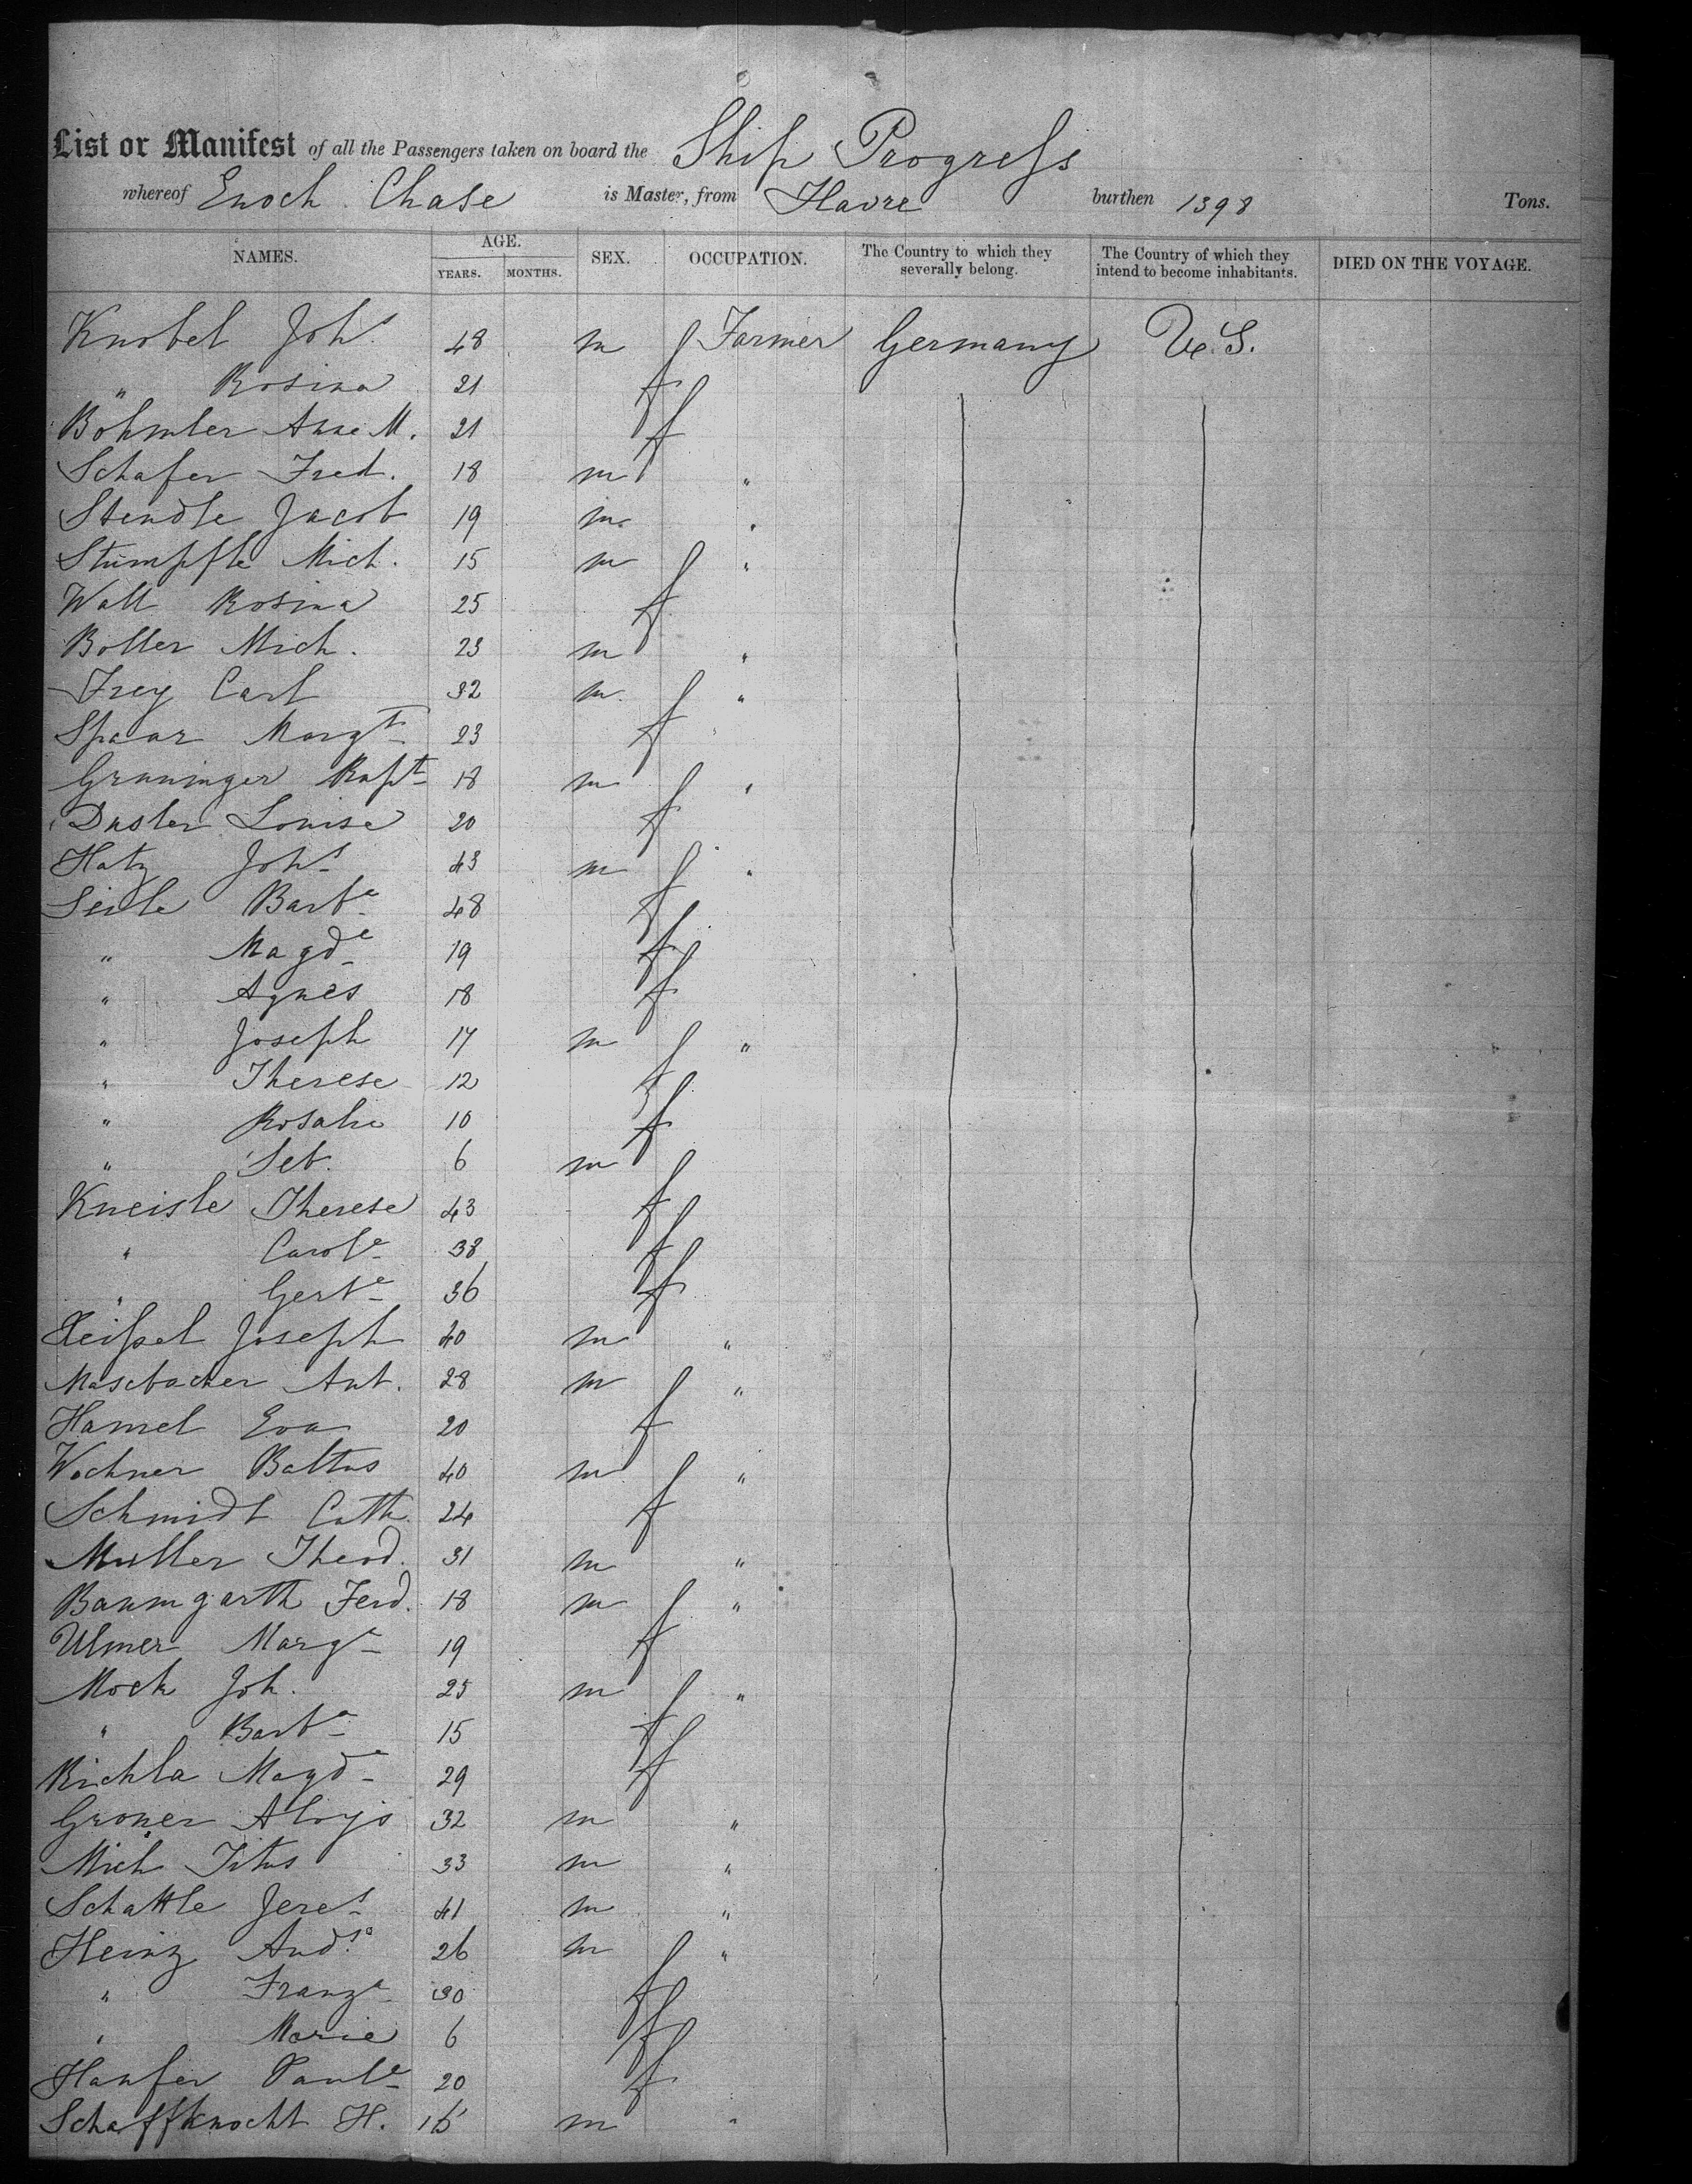 List or Manifest of all the Passengers taken on board the Ship Progress
whereof Enoch Chase is Master, from Havre burthen 1398 Tons.
NAMES. AGE. YEARS. MONTHS. SEX. OCCUPATION. The Country to which they severally belong. The Country of which they intend to become inhabitants. DIED ON THE VOYAGE.
Knobel Johs 48 m Farmer Germany U.S.
" Rosina 21 f
Bohmler Anne M. 21 f
Schafer Fred. 18 m "
Stendle Jacob 19 m "
Stumpfle Mich. 15 m "
Wall Rosina 25 f
Boller Mich. 23 m "
Frey Carl 32 m "
Spaar Margt 23 f
Gruninger 18 m "
Dusler Louise 20 f
Hatz Johs 43 m "
Seile Barbe 48 f
" Magde 19 f
" Agnes 18 f
" Joseph 17 m "
" Therese 12 f
" Rosalie 10 f
" Seb. 6 m
Kneisle Therese 43 f
" Carole 38 f
" Gerte 36 f
Joseph 40 m "
Ant. 28 m "
Hamel Eva 20 f
Wochner Baltus 40 m "
Schmidt Cath. 24 f
Muller Theod. 31 m "
Baumgarth Ferd. 18 m "
Ulmer Marge 19 f
Mock Joh. 25 m "
" Barba 15 f
Richla Magde 29 f
Groner Aloys 32 m "
Mich Titus 33 m "
Schattle Jere 41 m "
Heinz Ands 26 m "
" Franza 30 f
" Marie 6 f
Hanfer Paule 20 f
Schaffknocht H. 15 m "